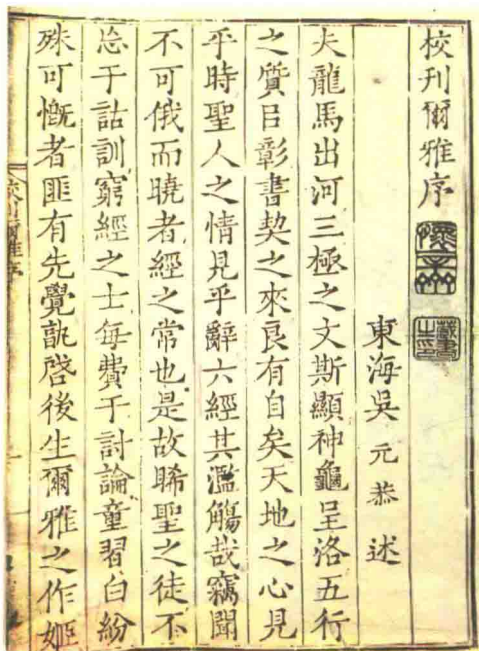 校刊爾雅序
東海吳元恭述
夫龍馬出河三極之文斯顯神龜呈洛五行
之質㠯彰書契之來良有自矣天地之心見
乎時聖人之情見乎辭六經其濫觴哉竊聞
不可俄而曉者經之常也是故晞聖之徒不
忩于詁訓窮經之士每費于討論童習白紛
殊可慨者匪有先覺孰啓後生爾雅之作姬